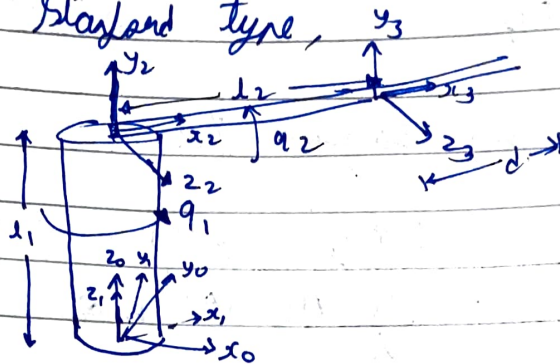 Stanford type,
y3
y2
l2
x3
x2
q2
z3
d
z2
q1
l1
z0 y1 y0
z1
x1
x0